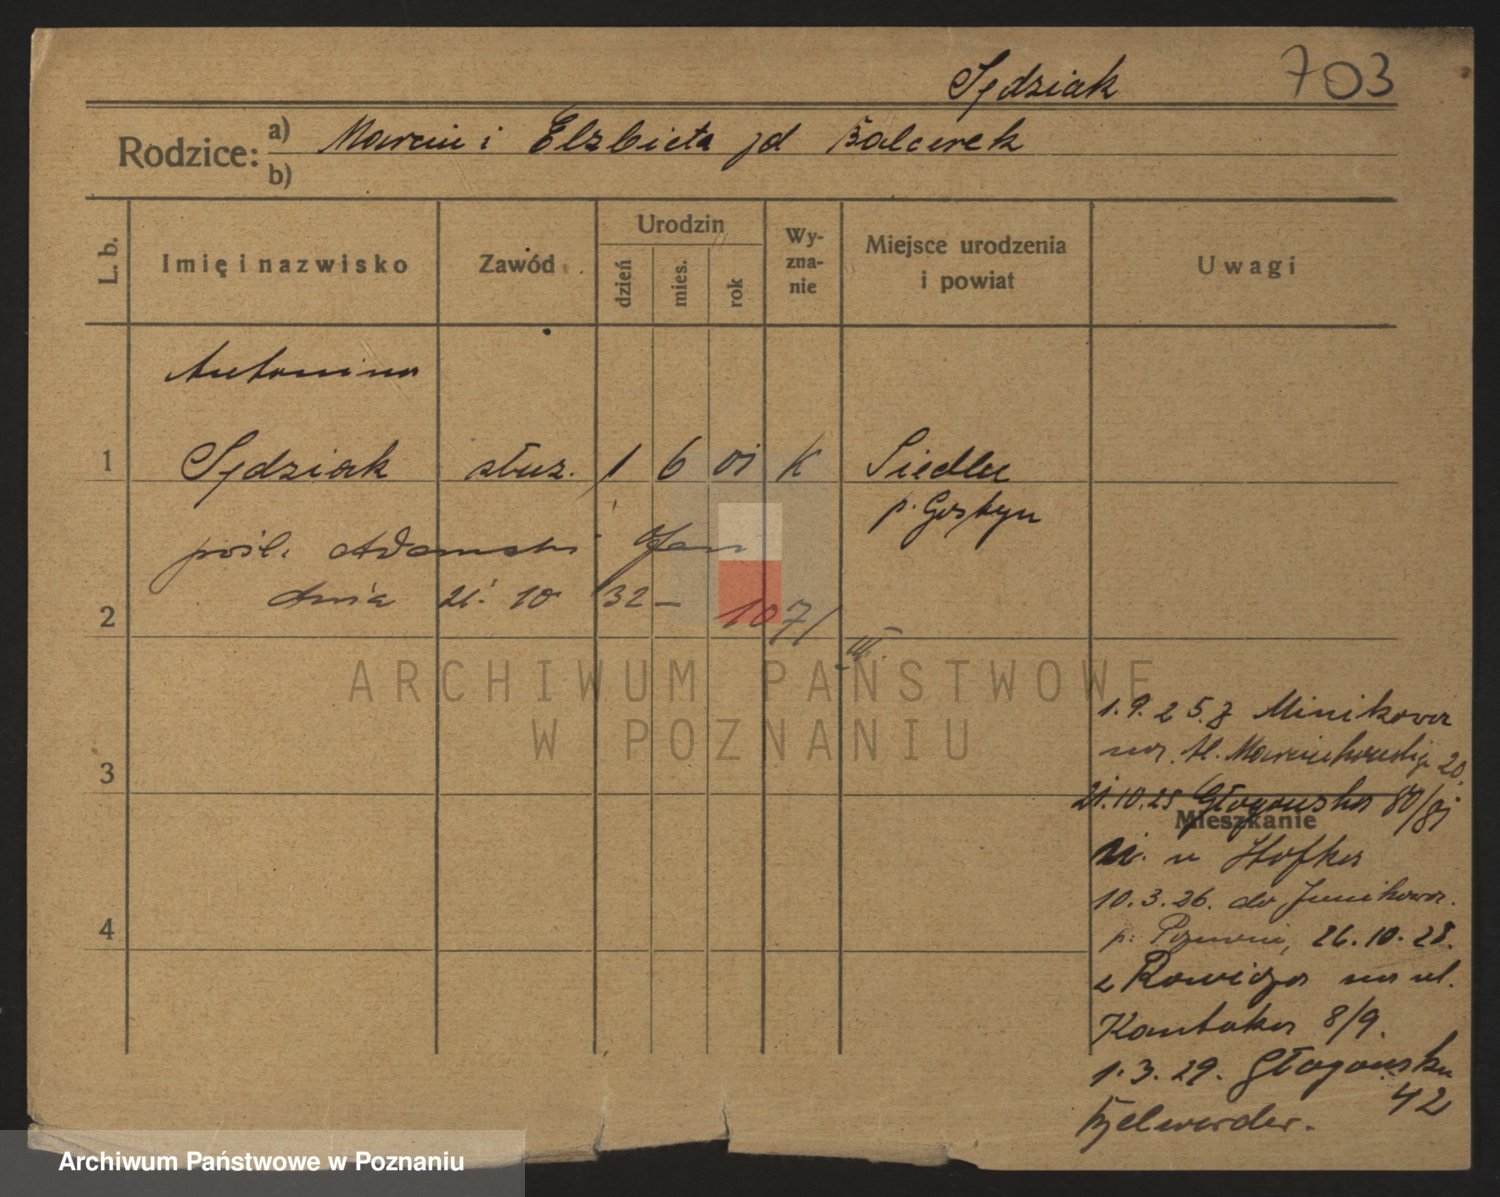 Sędziak 703
Rodzice: a) Marcin i Elżbieta zd Balcerek
b)
L. b. Imię i nazwisko Zawód Urodzin dzień mies. rok Wyznanie Miejsce urodzenia i powiat Uwagi
Antonina
1 Sędziak służ. 1 6 01 K Siedlec
p. Gostyń
pośl. Adamski Jan
dnia 21. 10 32 – 1071
2 III.
ARCHIWUM PAŃSTWOWE
W POZNANIU
1.9.25. z Minikowa
na Marcinkowskiego 20.
3
21.10.25 Głogowska 80/81
Mieszkanie
u Hofka
10.3.26. do Junikowa.
4 p. Poznań, 26.10.28.
z Rawicza na ul.
Kantaka 8/9.
1.3.29. Głogowska
42
Belwerder.
Archiwum Państwowe w Poznaniu